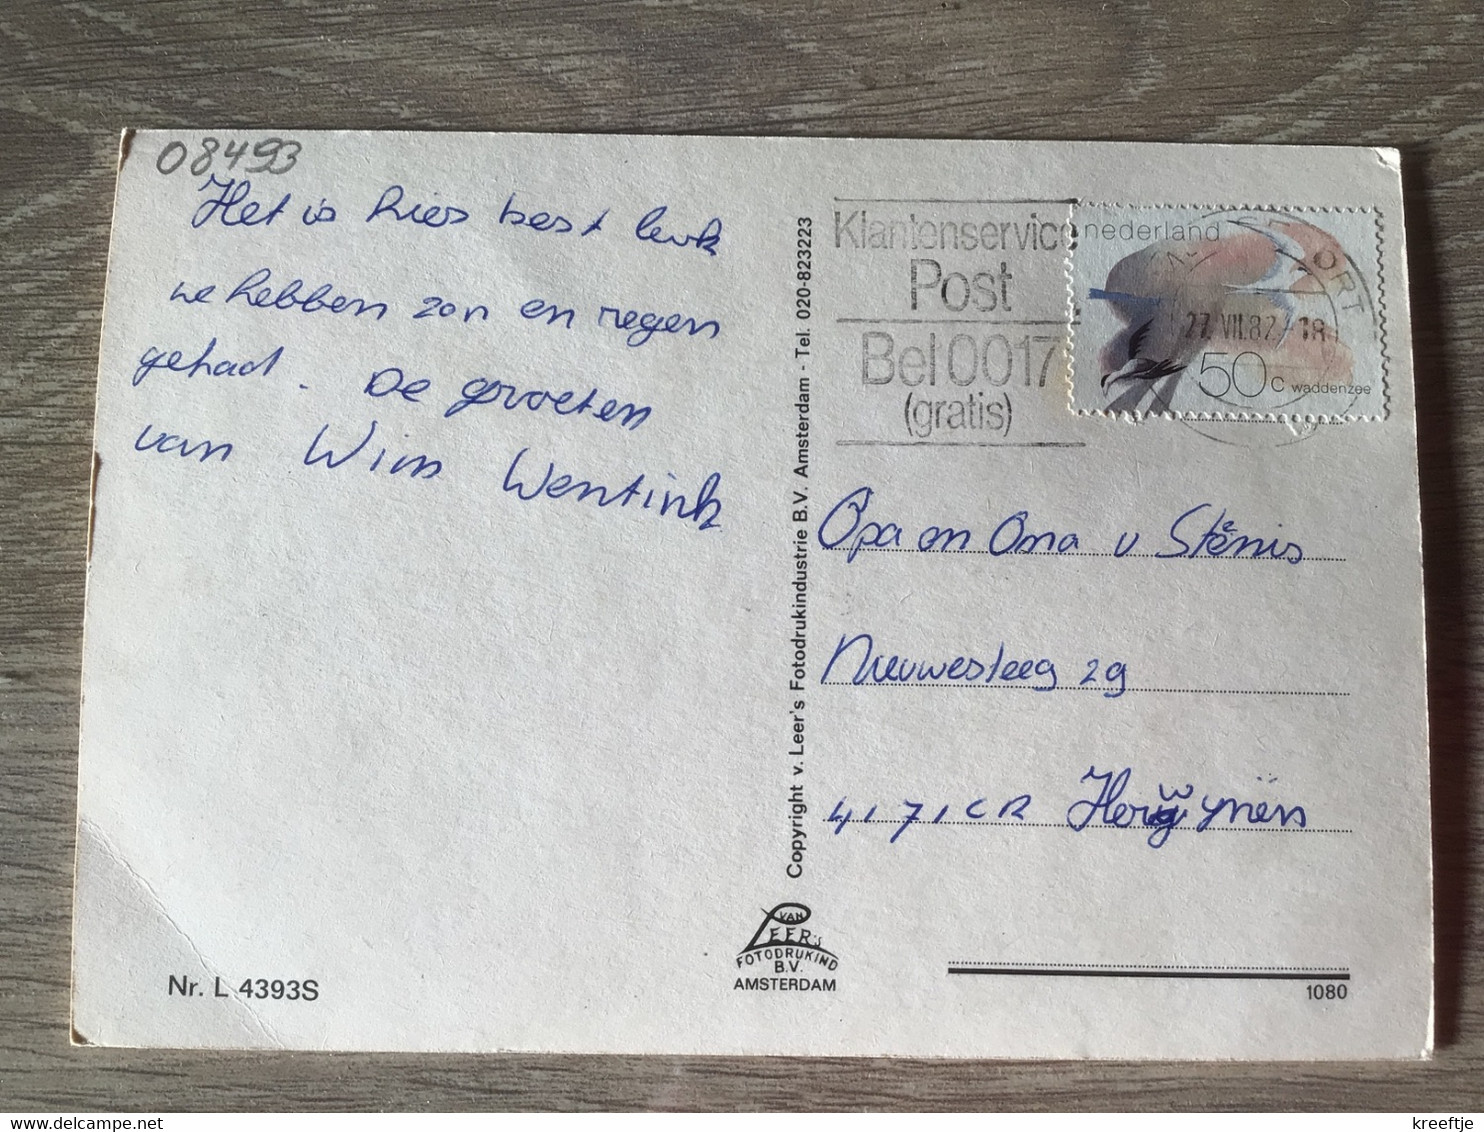 08493
Het is hier best leuk
we hebben zon en regen
gehad. De groeten
van Wim Wentink
Klantenservice
Post
Bel 0017
(gratis)
nederland
ORT
27.VII.82-18
50c waddenzee
Opa en Oma v Stenis
Nieuwesteeg 29
4171CR Herwynen
Copyright v. Leer's Fotodrukindustrie B.V. Amsterdam - Tel. 020-823223
VAN
LEER's
FOTODRUKIND
B.V.
AMSTERDAM
Nr. L 4393S
1080
kreeftje